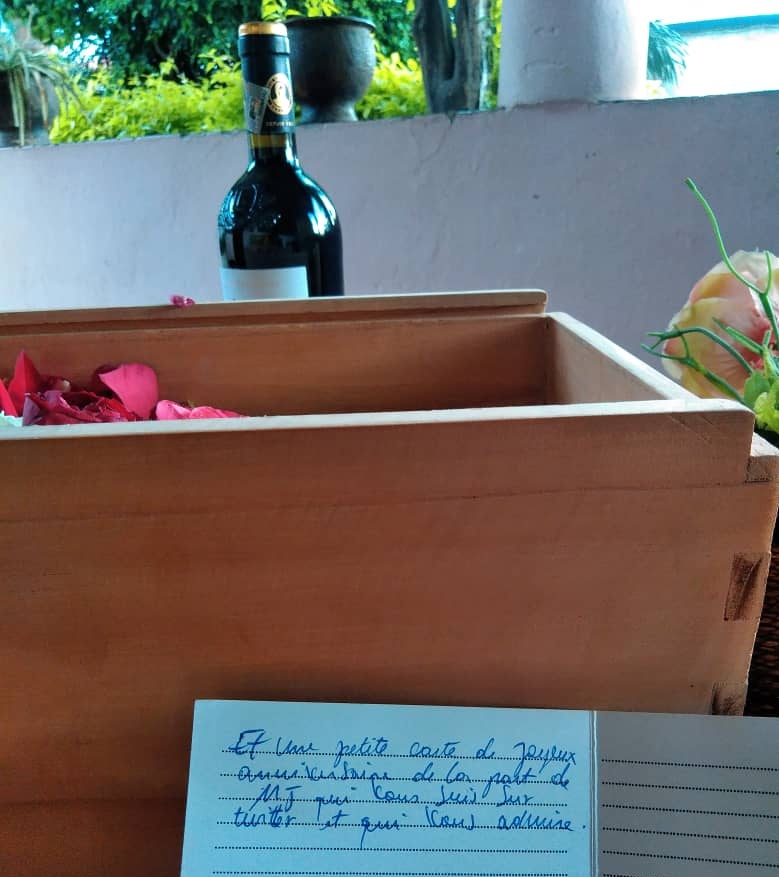 Et une petite carte de joyeux
anniversaire de la part de
MJ qui vous suis sur
twitter et qui vous admire.